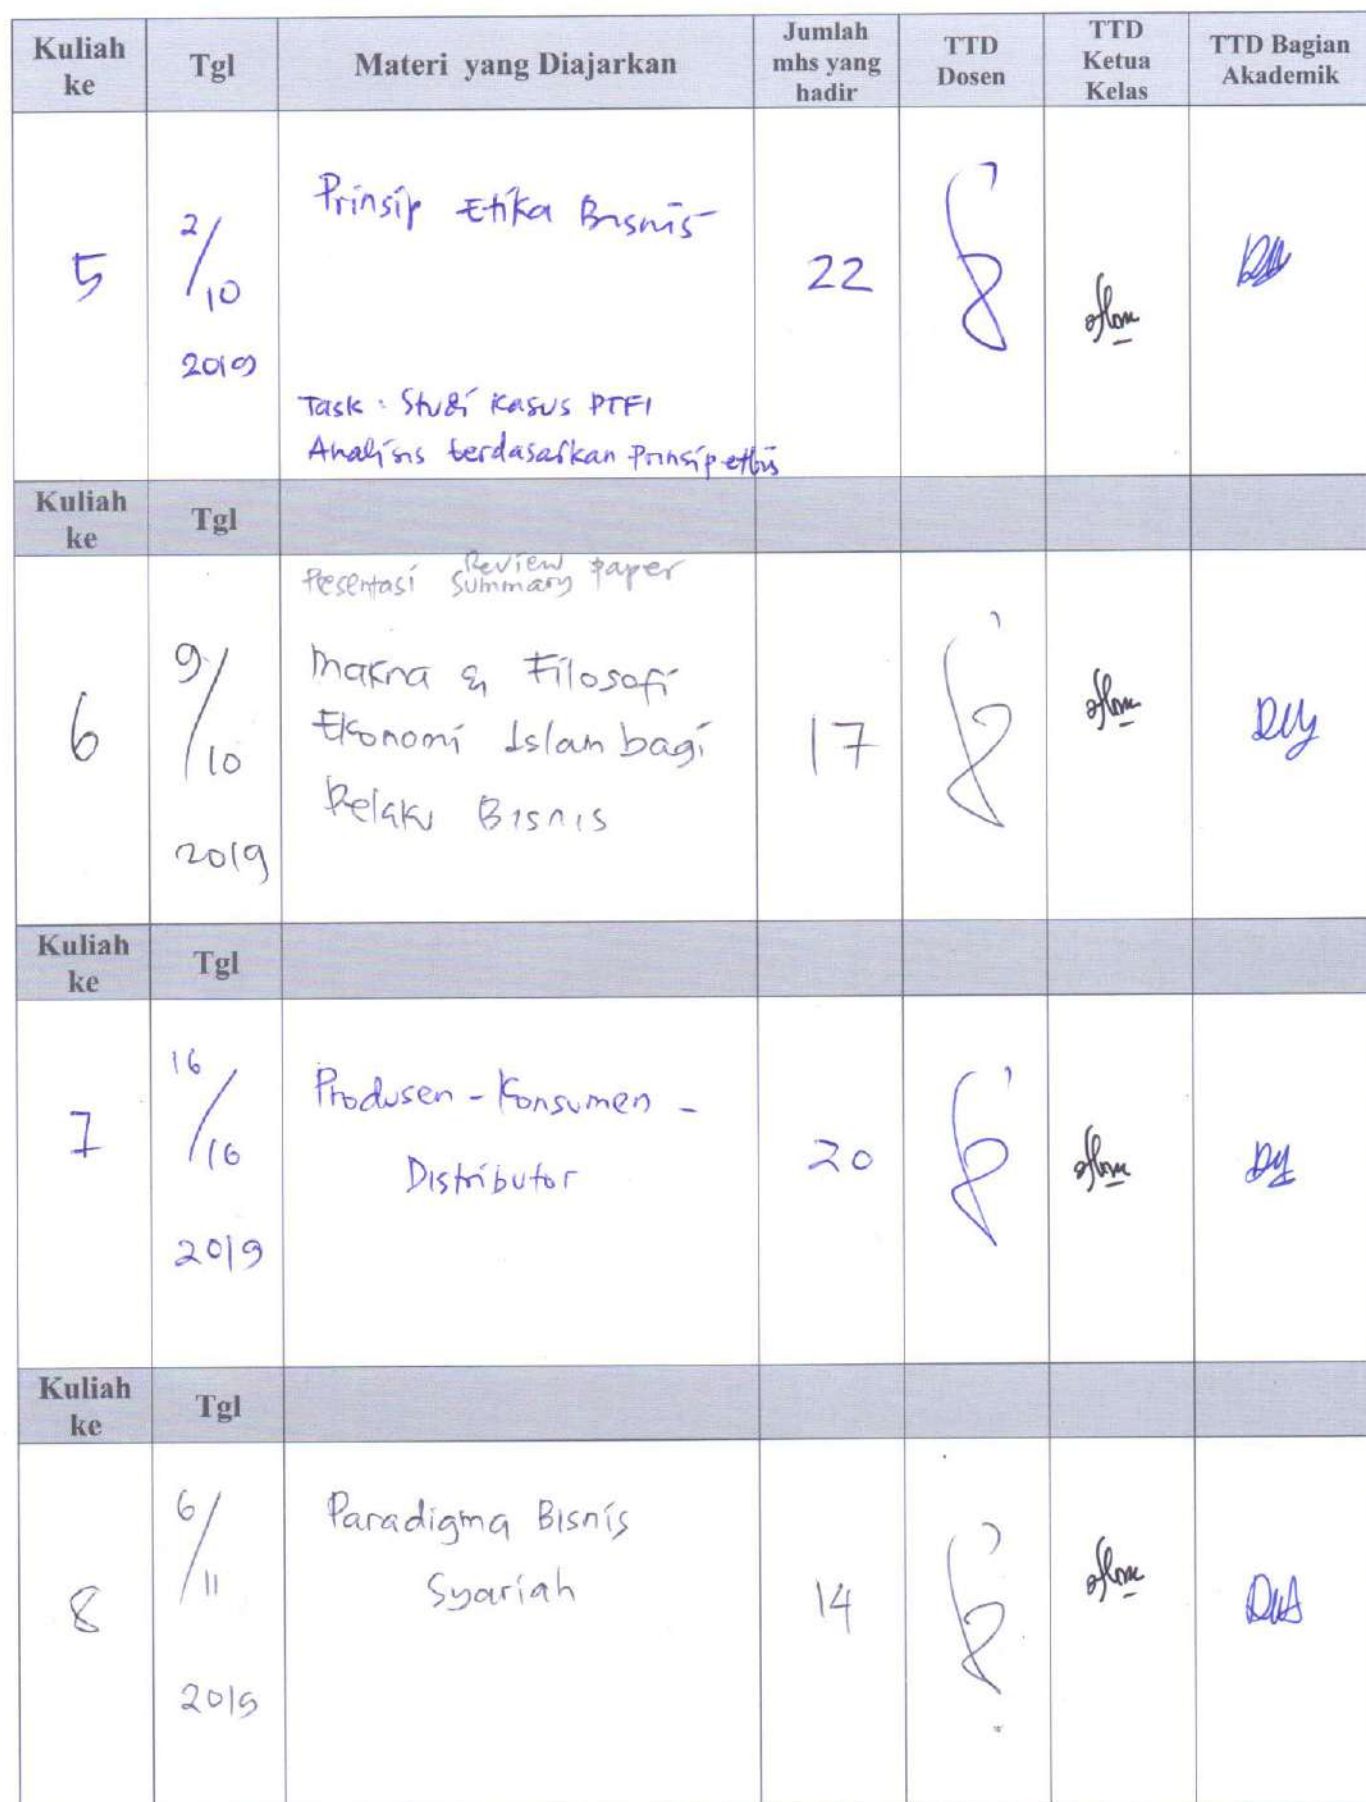 Kuliah ke Tgl Materi yang Diajarkan Jumlah mhs yang hadir TTD Dosen TTD Ketua Kelas TTD Bagian Akademik
5
2/10
2019
Prinsip Etika Bisnis
22
Task : Studi Kasus PTFI
Analisis berdasarkan Prinsip etbis
Kuliah ke Tgl
6
9/10
2019
Presentasi Review Summary paper
Makna & Filosofi
Ekonomi Islam bagi
Pelaku Bisnis
17
Kuliah ke Tgl
7
16/16
2019
Produsen - Konsumen -
Distributor
20
Kuliah ke Tgl
8
6/11
2019
Paradigma Bisnis
Syariah
14